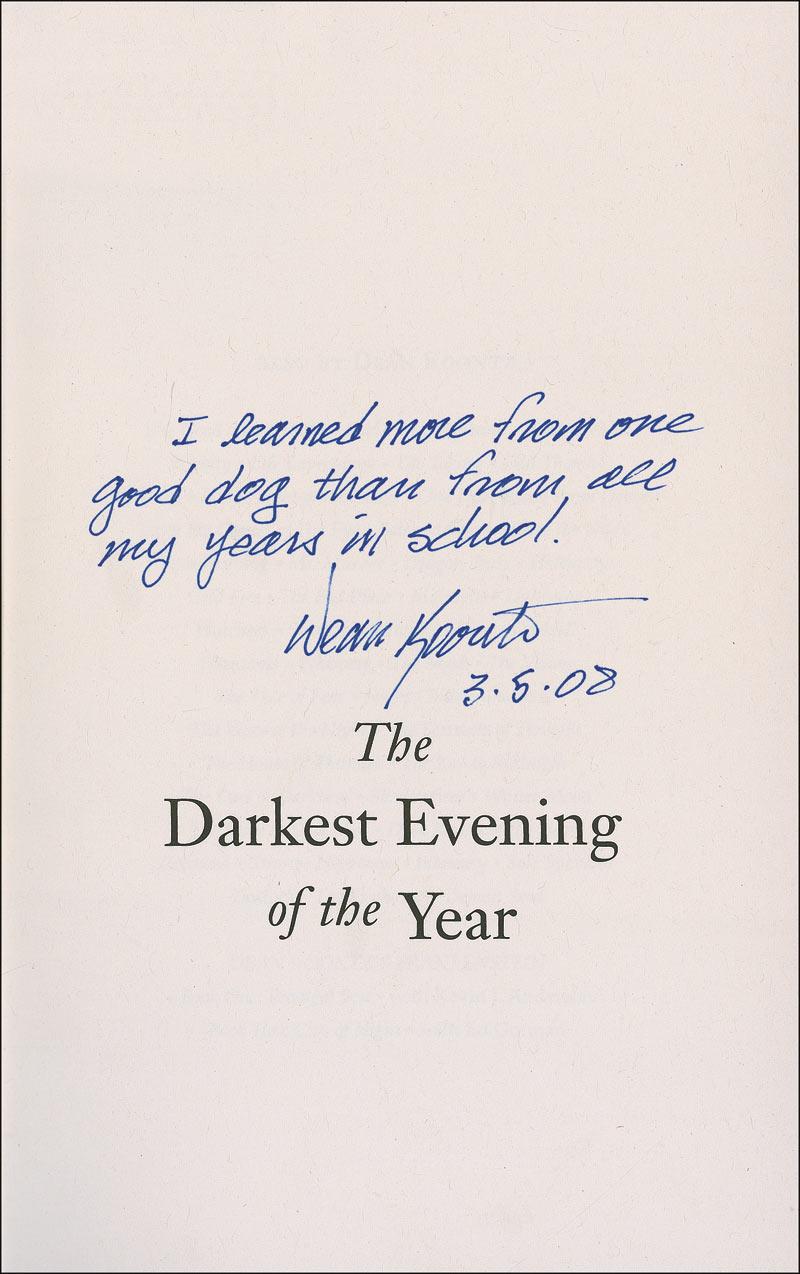 ALSO BY DEAN KOONTZ
I learned more from one
good dog than from all
my years in school.
Dean Koontz
3.5.08
The
Darkest Evening
of the Year